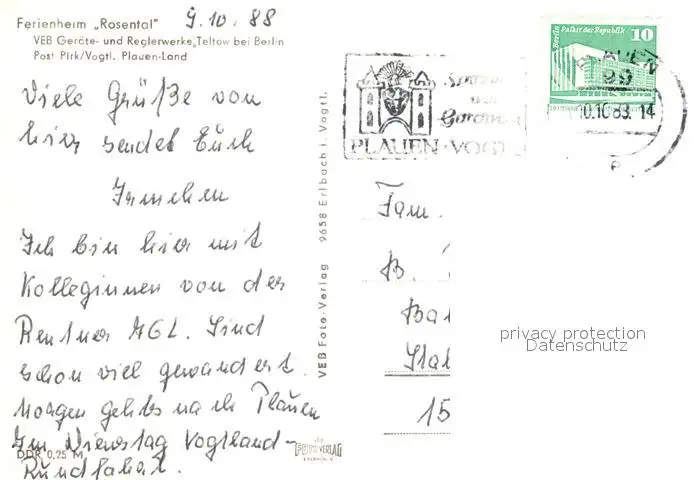 Ferienheim „Rosental"
9.10.88
VEB Geräte- und Reglerwerke „Teltow bei Berlin
Post Pirk/Vogtl. Plauen-Land
Viele Grüße von
hier sendet Euch
Jamchen
Ich bin hier mit
Kolleginnen von der
Rentner AGL. Sind
schon viel gewandert.
Morgen gehts nach Plauen
Im Dienstag Vogtland-
Rundfahrt.
DDR 0,25 M
VEB Foto-Verlag 9658 Erlbach i. Vogtl.
FOTO-VERLAG
ERLBACH V.
Spitzen
und
Gardinen
PLAUEN·VOGTL
Berlin Palast der Republik
10
PLAUEN
99
10.10.88. 14
e
Fam.
B.
Ba
Stal
15
privacy protection
Datenschutz